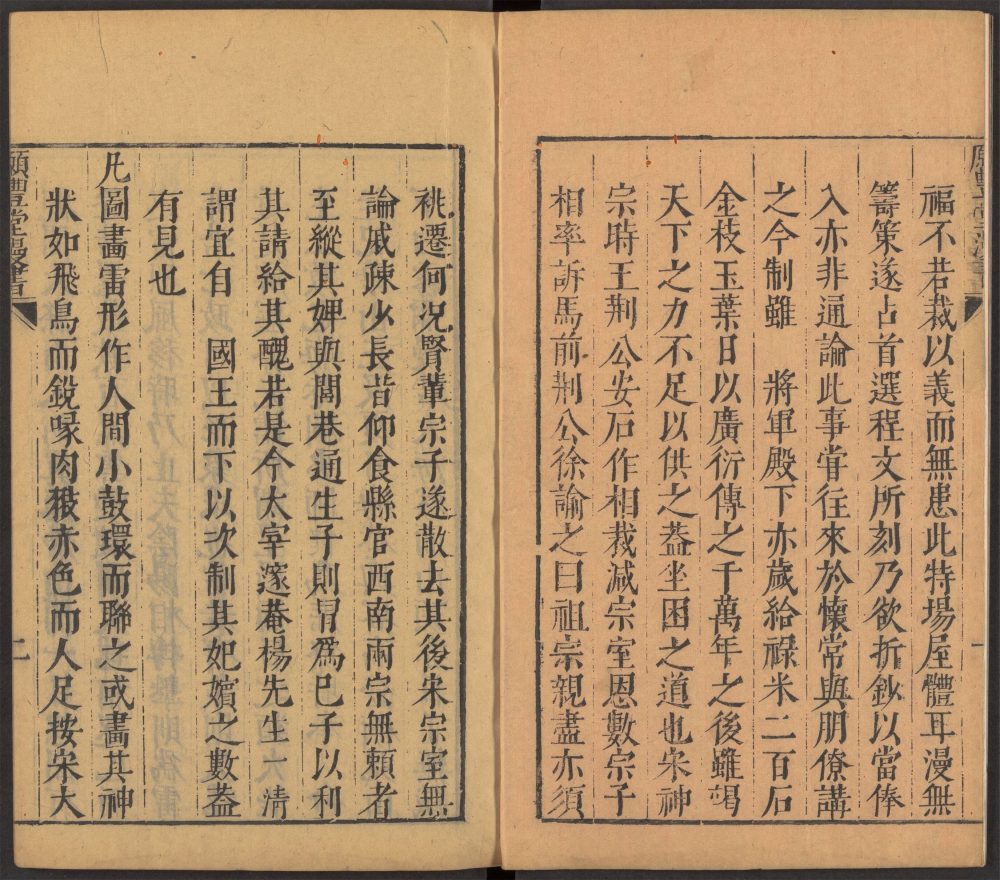 福不若裁以義而無患此特場屋體耳漫無
籌策遂占首選程文所刻乃欲折鈔以當俸
入亦非通論此事甞往來於懷常與朋僚講
之今制雖　將軍殿下亦歲給祿米二百石
金枝玉葉日以廣衍傳之千萬年之後雖竭
天下之力不足以供之葢坐困之道也宋神
宗時王荆公安石作相裁減宗室恩數宗子
相率訴馬前荆公徐諭之曰祖宗親盡亦須
一
祧遷何况賢輩宗子遂散去其後宋宗室無
論戚疎少長皆仰食縣官西南兩宗無賴者
至縱其婢與閭巷通生子則冒爲已子以利
其請給其醜若是今太宰邃菴楊先生一清
謂宜自　國王而下以次制其妃嬪之數葢
有見也
凡圖畫雷形作人間小鼓環而聯之或畫其神
狀如飛鳥而鋭喙肉翅赤色而人足按宋大
願豐堂漫書
二